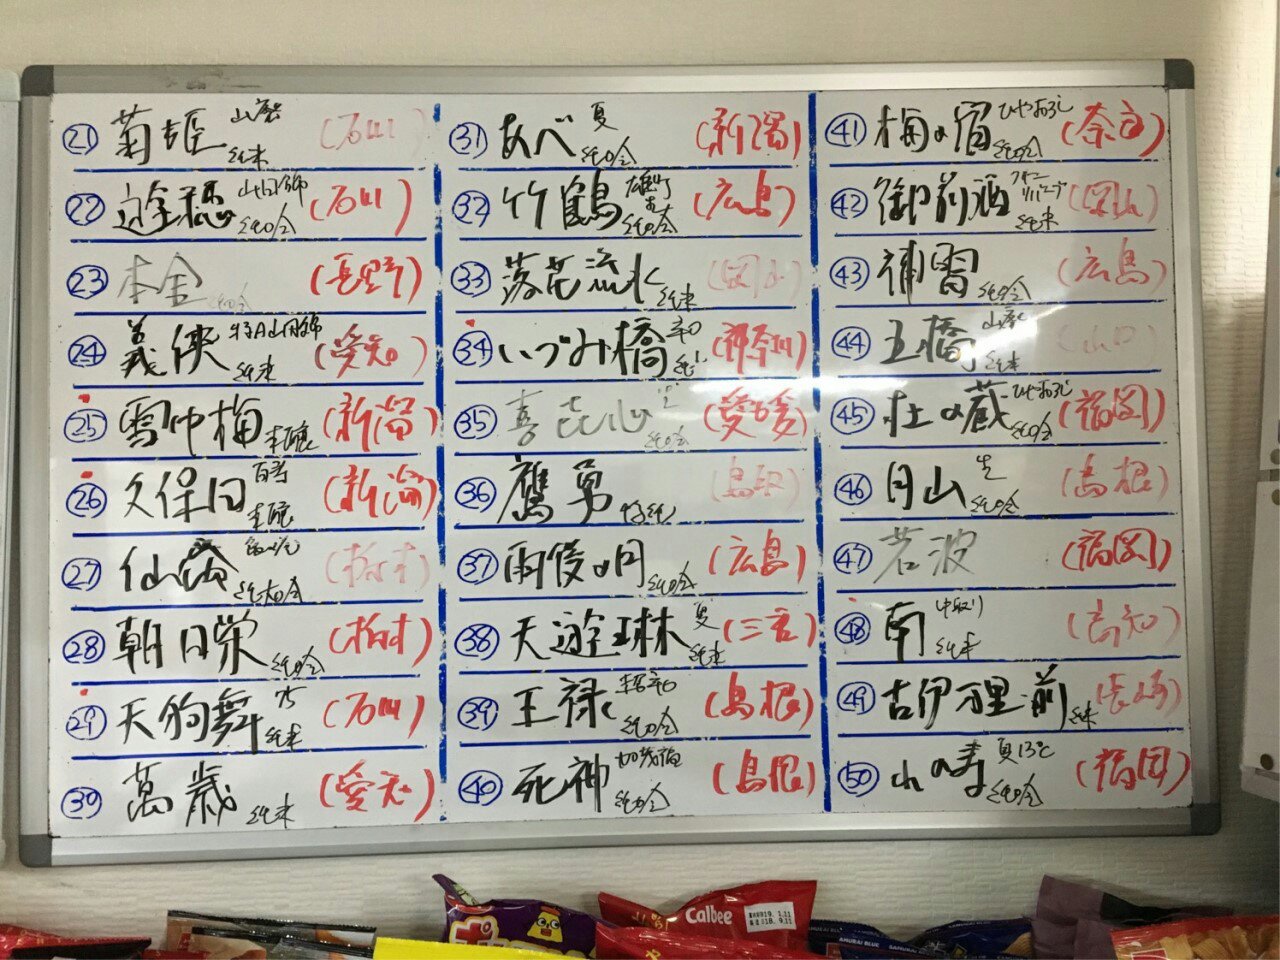 ㉑ 菊姫 山廃 純米 (石川)
㉒ 遊穂 山田錦 純吟 (石川)
㉓ 本金 純吟 (長野)
㉔ 義侠 特A山田錦 純米 (愛知)
㉕ 雪中梅 本醸 (新潟)
㉖ 久保田 百寿 本醸 (新潟)
㉗ 仙禽 純大吟 (栃木)
㉘ 朝日栄 純吟 (栃木)
㉙ 天狗舞 純米 (石川)
㉚ 萬歳 純米 (愛知)
㉛ あべ 夏 純吟 (新潟)
㉜ 竹鶴 雄町 純吟 (広島)
㉝ 落花流水 純米
㉞ いづみ橋 辛口 純 (神奈川)
㉟ 喜正心 生 純吟 (愛媛)
㊱ 鷹勇 特純 (鳥取)
㊲ 雨後の月 純吟 (広島)
㊳ 天遊琳 夏 純米 (三重)
㊴ 王祿 超辛口 純吟 (島根)
㊵ 死神 加茂福 純吟 (島根)
㊶ 梅の宿 ひやおろし 純吟 (奈良)
㊷ 御前酒 純米 (岡山)
㊸ 誠鏡 純吟 (広島)
㊹ 五橋 山廃 純米 (山口)
㊺ 杜の蔵 ひやおろし 純吟 (福岡)
㊻ 月山 生 純吟 (島根)
㊼ 若波 (福岡)
㊽ 南 中取り 純米 (高知)
㊾ 古伊万里 前 純米
㊿ 山の寿 夏13℃ 純吟 (福岡)
Calbee
19. 1.11
S18. 9.11
SAMURAI BLUE
SAMURAI BLUE